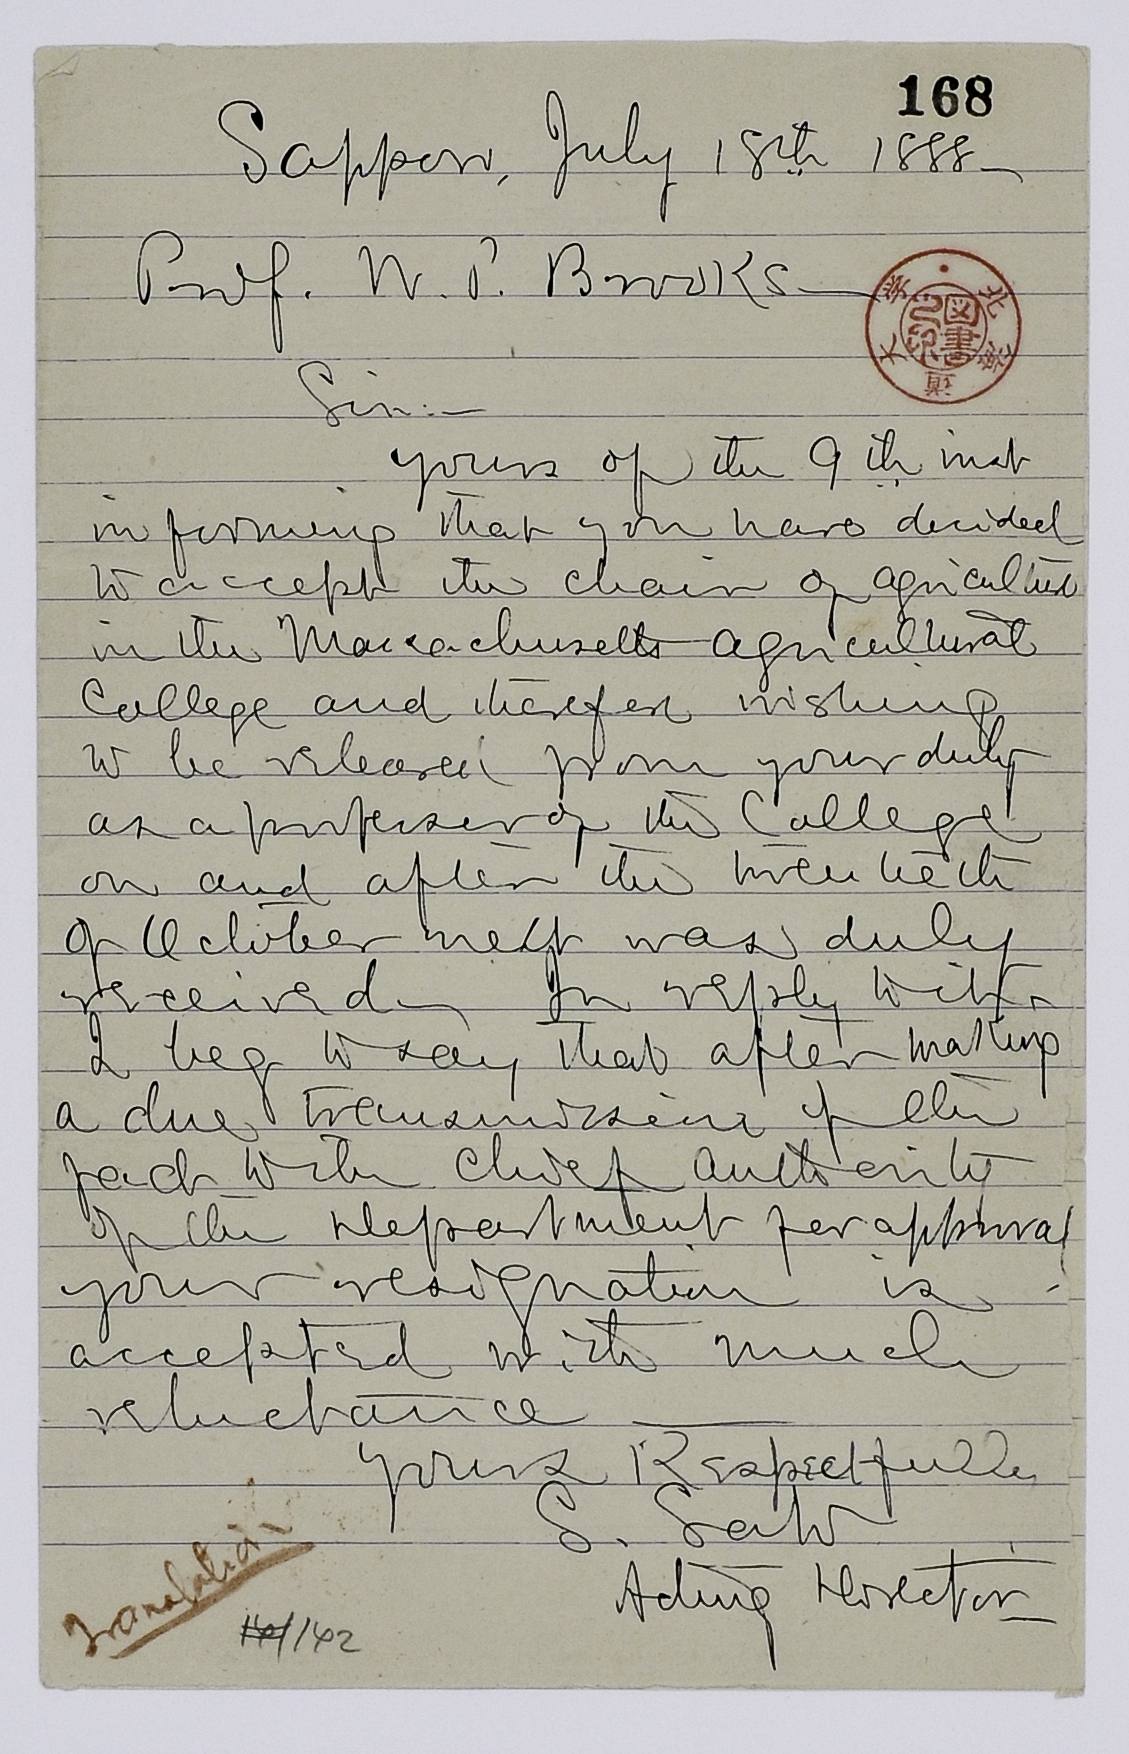 168
Sapporo, July 18th 1888
Prof. W. P. Brooks
Sir:—
yours of the 9th inst
informing that you have decided
to accept the chair of agriculture
in the Massachusetts agricultural
College and therefore wishing
to be released from your duty
as a professor of the College
on and after the twentieth
of October next was duly
received. In reply
I beg to say that after making
a due transmission of the
fact to the chief authority
of the Department for approval
your resignation is
accepted with much
reluctance
yours Respectfully
S. Sato
Acting Director
Translation
142
北海道大学
図書之印